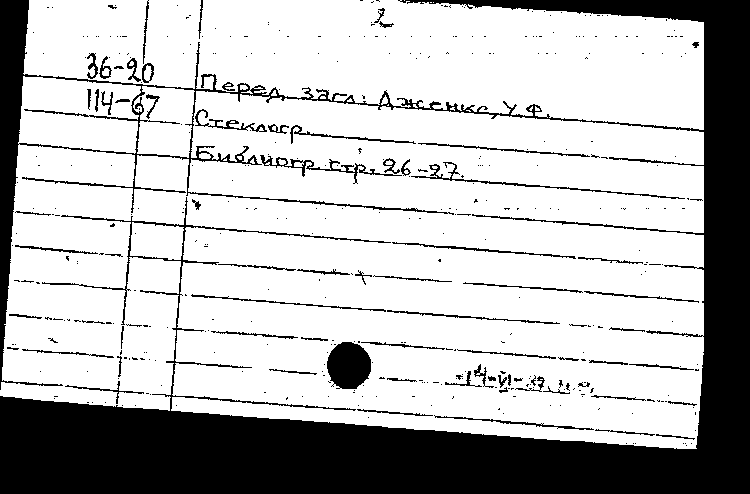 2
36-20
114-67
Перед загл: Дженкс, У. Ф.
Стеклогр.
Библиогр стр. 26-27.